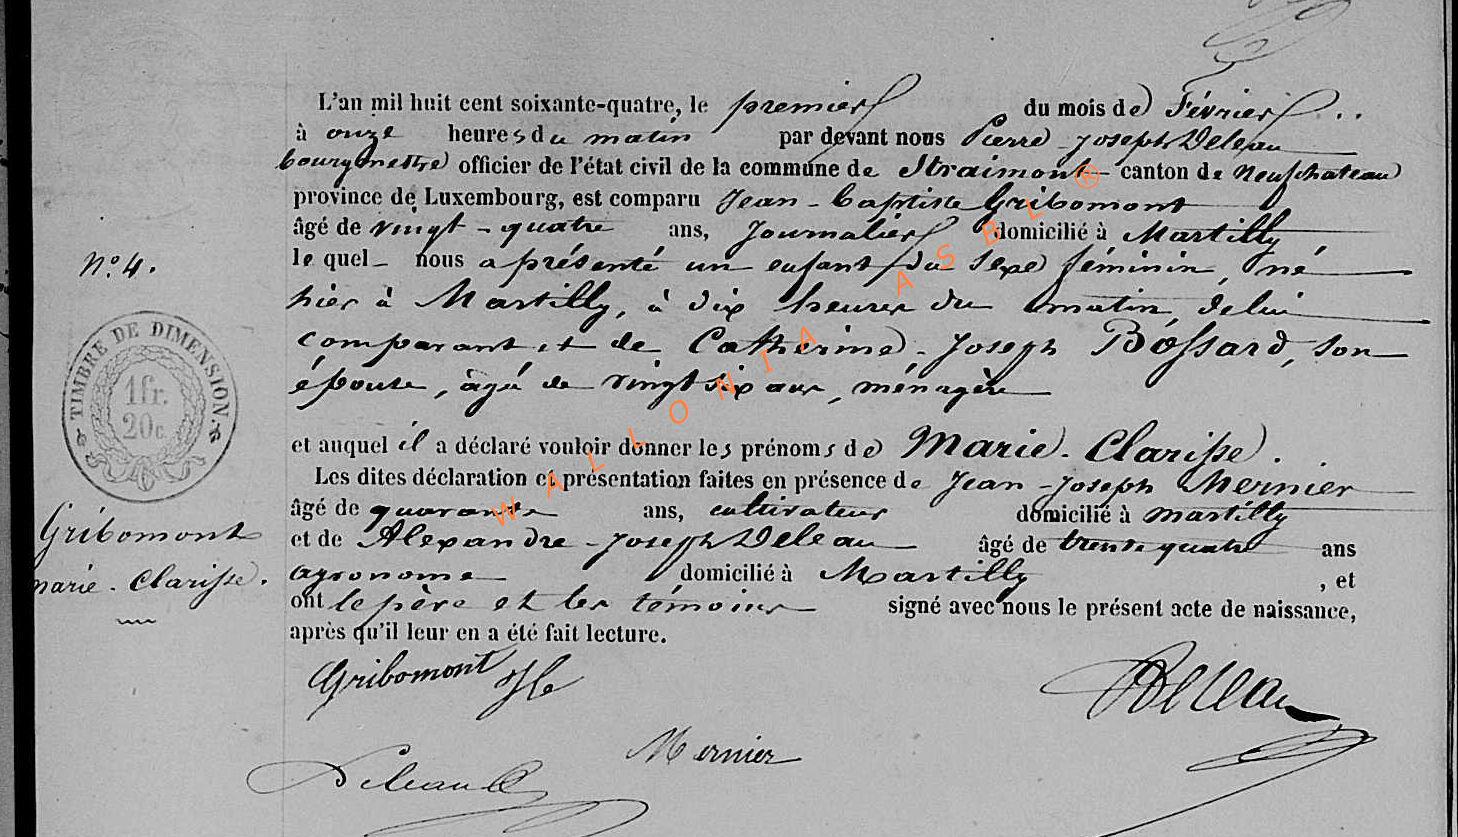 L'an mil huit cent soixante-quatre, le premier du mois de Février
à onze heures du matin par devant nous Pierre-Joseph Deleau
bourgmestre officier de l'état civil de la commune de Straimont canton de Neufchateau
province de Luxembourg, est comparu Jean-Baptiste Gribomont
âgé de vingt-quatre ans, Journalier domicilié à Martilly
N° 4.
le quel nous a présenté un enfant du sexe féminin, né
hier à Martilly, à dix heures du matin, de lui
comparant et de Catherine-Joseph Bossard, son
épouse, âgé de vingt six ans, ménagère
TIMBRE DE DIMENSION.
1 fr.
20 c.
et auquel il a déclaré vouloir donner les prénoms de Marie-Clarisse.
Les dites déclaration et présentation faites en présence de Jean-Joseph Mernier
âgé de quarante ans, cultivateur domicilié à Martilly
et de Alexandre-Joseph Deleau âgé de trente quatre ans
agronome domicilié à Martilly, et
ont le père et les témoins signé avec nous le présent acte de naissance,
après qu'il leur en a été fait lecture.
Gribomont
marie-Clarisse.
Gribomont
Deleau
Mernier
Deleau
WALLONIA ASBL ®